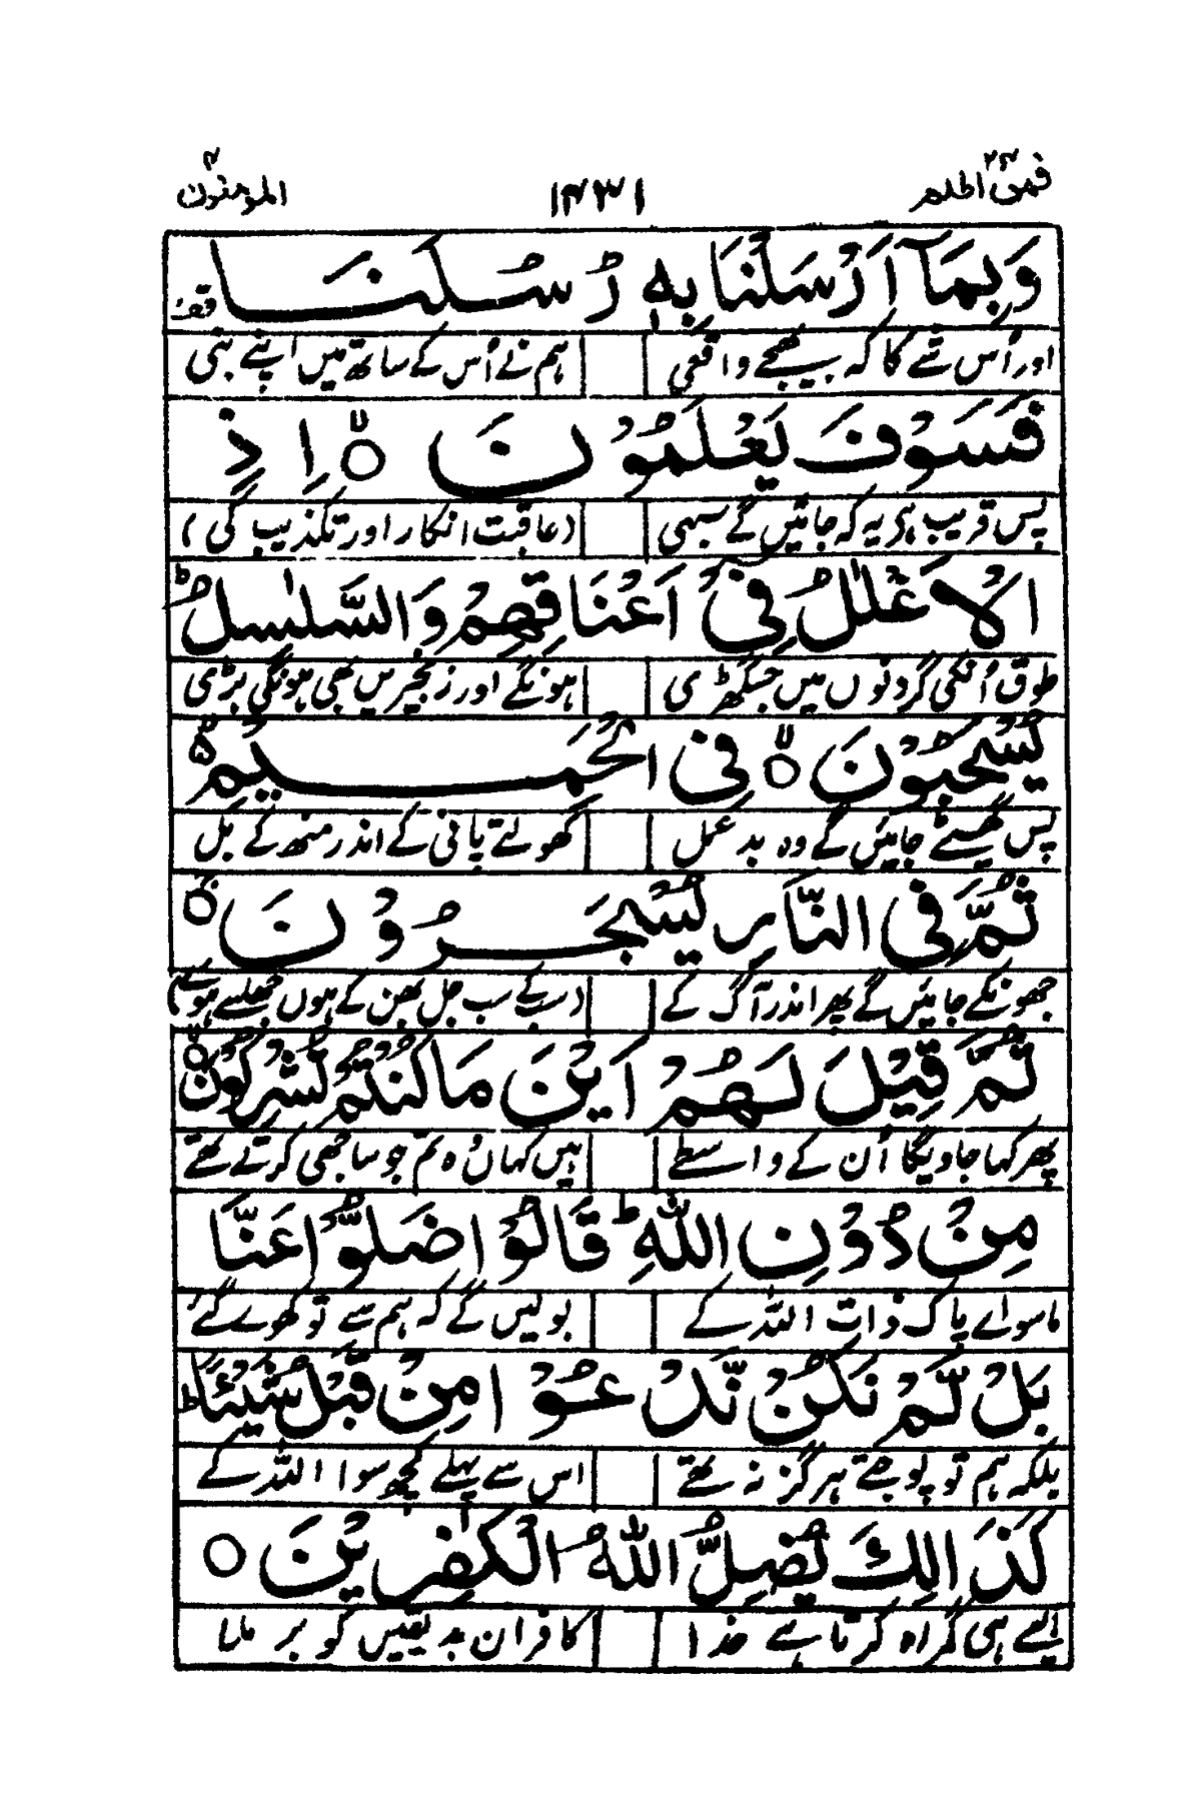 فمن اظلم ۲۴ ۱۴۳۱ المؤمنون ۴
وَبِمَآ اَرْسَلْنَا بِهٖ رُسُلَنَا قف
اور اُس شے کا کہ بھیجے واقعی ہم نے اُس کے ساتھ میں اپنے نبی
فَسَوْفَ يَعْلَمُوْنَ ۝ۙ اِذِ
پس قریب ہی یہ کہ جائیں گے سبھی (عاقبت انکار اور تکذیب کی)
الْاَغْلٰلُ فِىْٓ اَعْنَاقِهِمْ وَالسَّلٰسِلُ ؕ
طوق اُنکی گردنوں میں جسگھڑی ہونگے اور زنجیریں بھی ہونگی بڑی
يُسْحَبُوْنَ ۝ۙ فِى الْحَمِيْمِ ۙ۬
پس گھسیٹے جائیں گے وہ بد عمل کھولتے پانی کے اندر منھ کے بل
ثُمَّ فِى النَّارِ يُسْجَرُوْنَ ۝ۚ
جھونکے جائیں گے پھر اندر آگ کے (رہکے سب جل بھن کے ہوں جھلسے ہوئے)
ثُمَّ قِيْلَ لَهُمْ اَيْنَ مَا كُنْتُمْ تُشْرِكُوْنَ ۝ۙ
پھر کہا جاویگا اُن کے واسطے ہیں کہاں وہ تم جو ساجھی کرتے تھے
مِنْ دُوْنِ اللّٰهِ ؕ قَالُوْا ضَلُّوْا عَنَّا
ماسوائے پاک ذات اللہ کے بولیں گے کہ ہم سے تو کھوئے گئے
بَلْ لَّمْ نَكُنْ نَّدْعُوْا مِنْ قَبْلُ شَيْئًا ؕ
بلکہ ہم تو پوجتے ہرگز نہ تھے اس سے پہلے کچھ سوا اللہ کے
كَذٰلِكَ يُضِلُّ اللّٰهُ الْكٰفِرِيْنَ ۝
ایسے ہی گمراہ کرتا ہے خدا کافران بد یقیں کو بر ملا